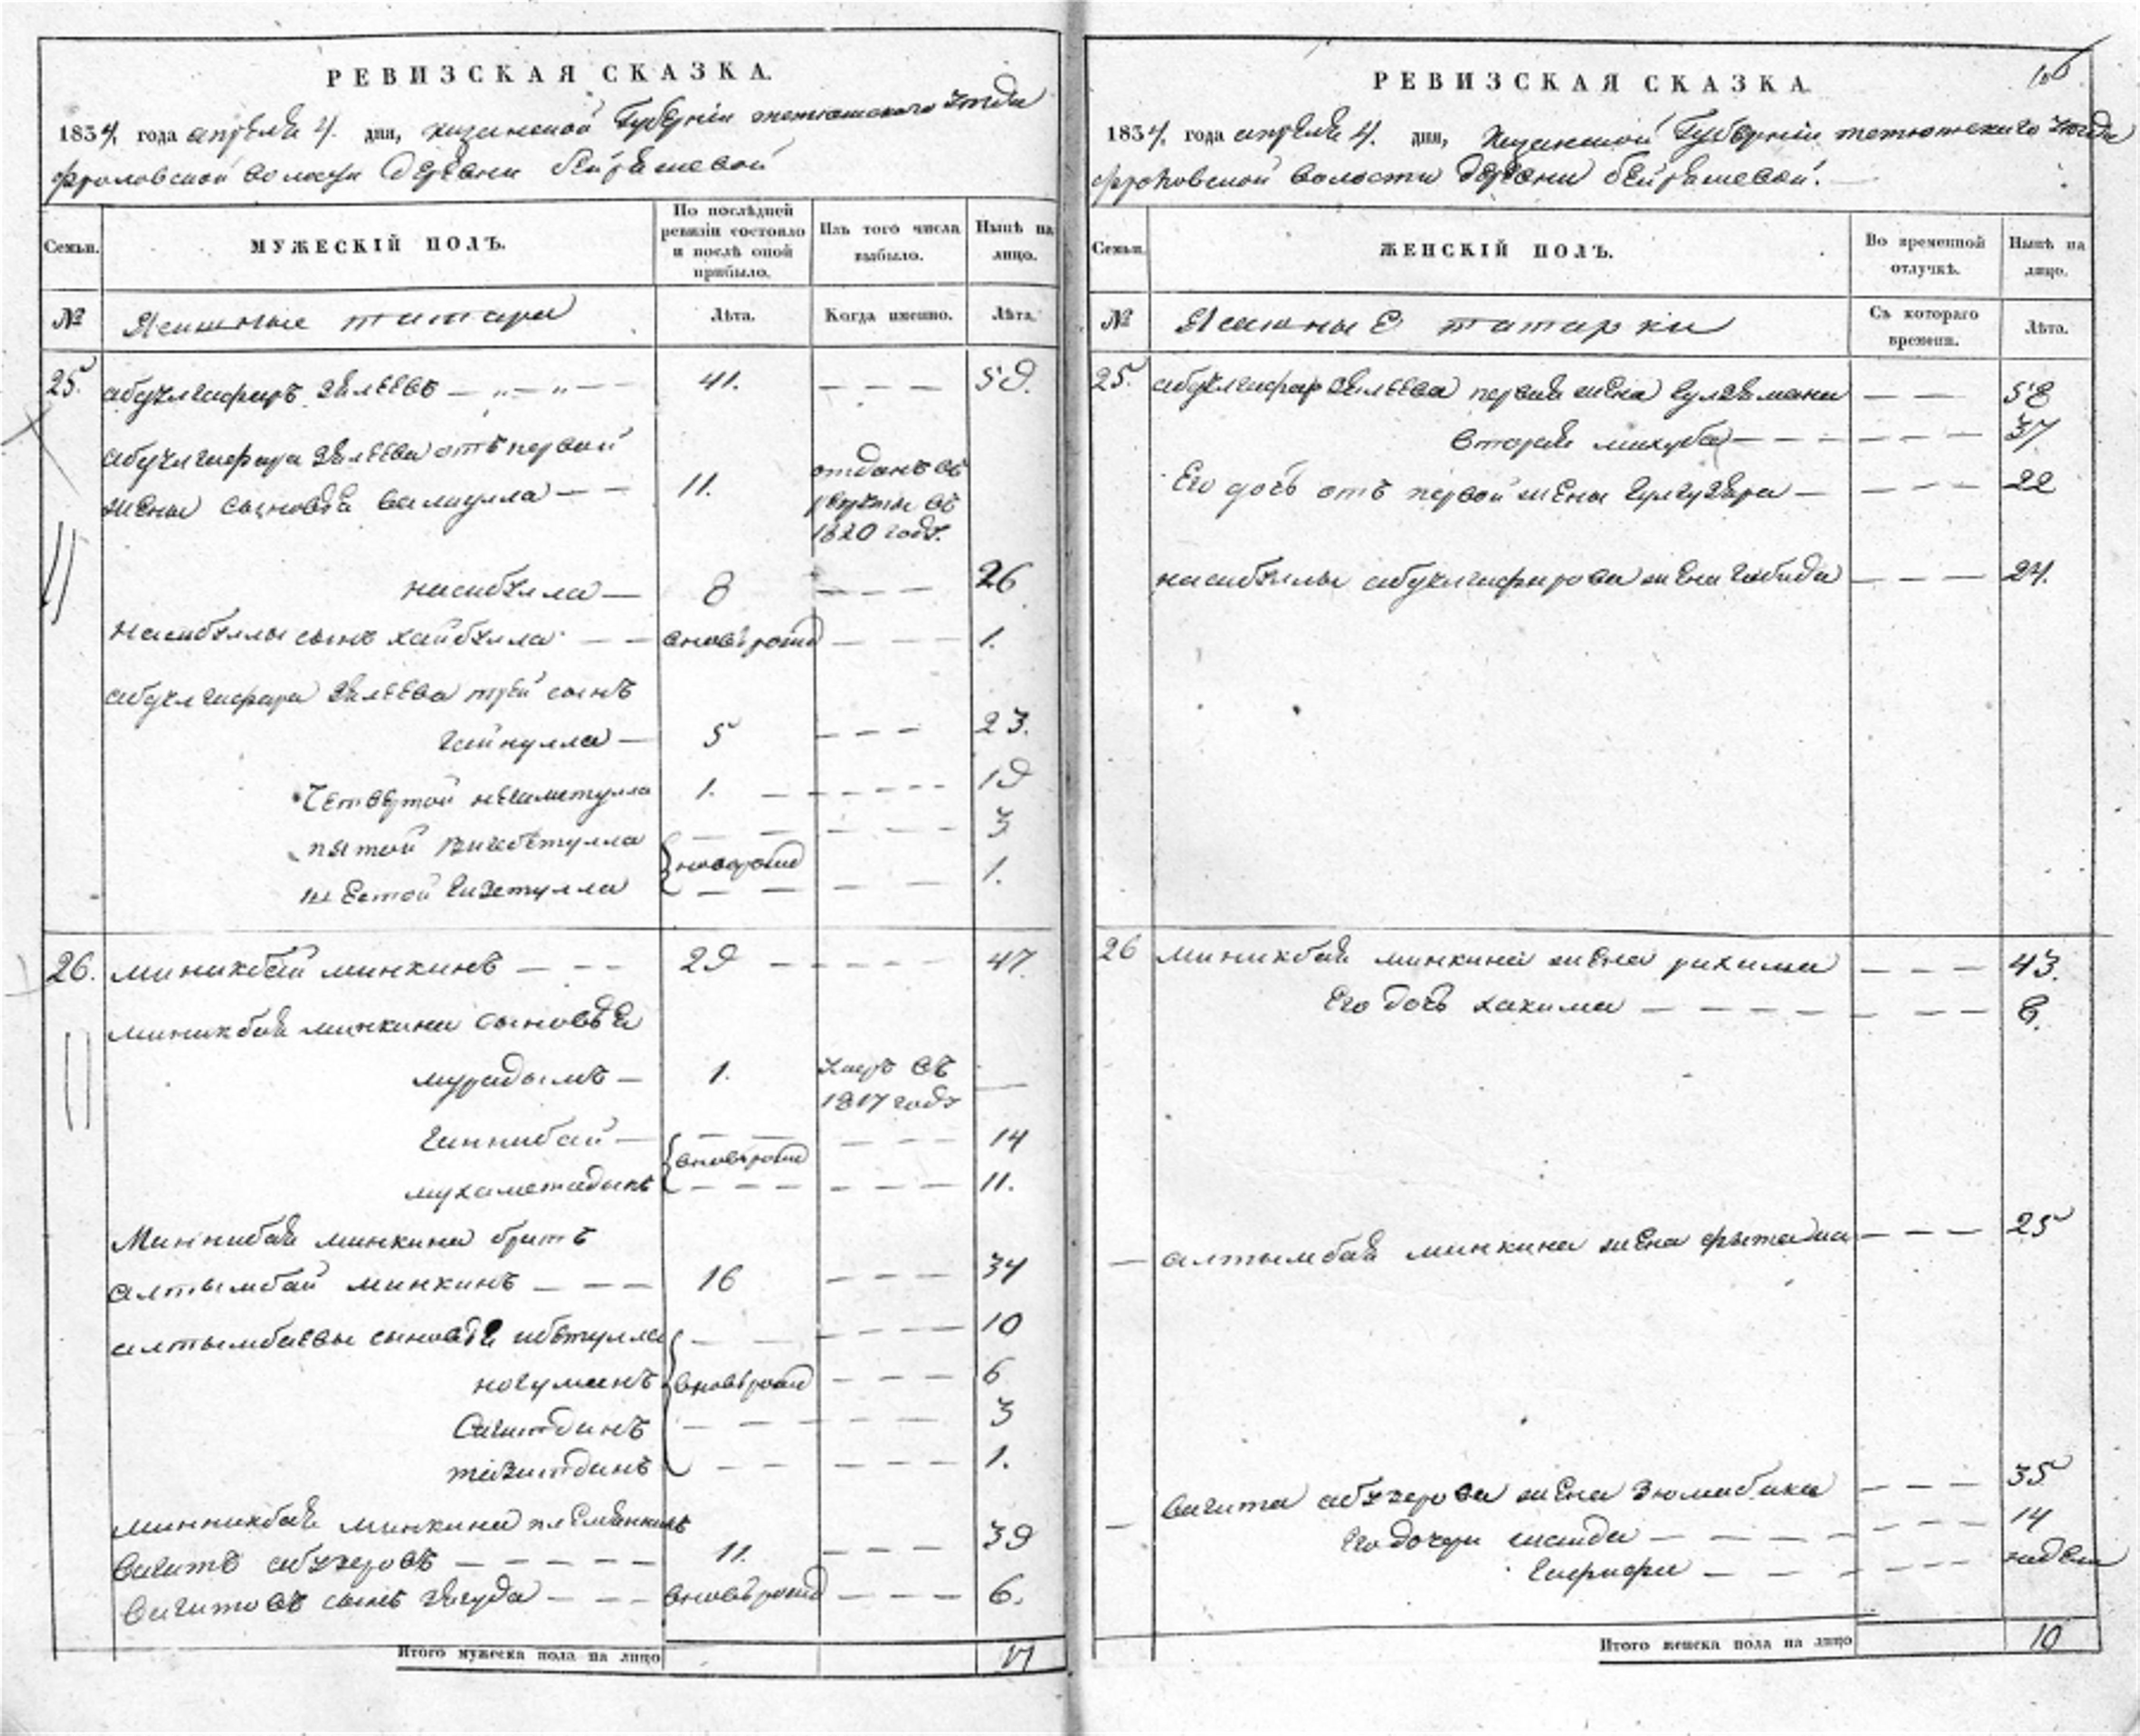 РЕВИЗСКАЯ СКАЗКА.
1834, года апреля 4. дня, казанской Губернiи тетюшского уезда
фроловской волости деревни бейряшевой
Семьи.
МУЖЕСКIЙ ПОЛЪ.
По послѣдней ревизiи состояло и послѣ оной прибыло.
Изъ того числа выбыло.
Нынѣ на лицо.
№ Ясашные татара
Лѣта. Когда именно. Лѣта.
25. абдулгафаръ — „ — „ — 41. — — — 59.
абдулгафара отъ первой
жены сыновья валиулла — — 11. отданъ въ рекруты въ 1820 году.
насибулла — 8 — — — 26
насибуллы сынъ хайбулла — — вновь рожд — — — 1.
абдулгафара третей сынъ
гайнулла — 5 — — — 23.
четвертой негаметулла 1. — — — — — 19
пятой — — — — — — 3
новорожд
шестой гизетулла — — — — — 1.
26. миникбай минкинъ — — — 29 — — — — — 47.
миникбая минкина сыновья
мурадымъ — 1. умре въ 1817 году —
ганнибай — — — — — — 14
вновь рожд
мухаметадинъ — — — — — — — 11.
Миннибая минкина братъ
алтымбай минкинъ — — — 16 — — — — 34
алтымбаевы сыновья — — — — — — 10
ногуманъ вновь рожд — — — 6
Сагитдинъ — — — — — — 3
тазитдинъ — — — — — — 1.
минникбая минкина племянникъ
вагитъ — — — — — 11. — — — 39
вагитовъ сынъ ягуда — — — вновь рожд — — — 6.
Итого мужеска пола на лицо 17
106
РЕВИЗСКАЯ СКАЗКА.
1834, года апреля 4. дня, Казанской Губернiи тетюшского уезда
фроловской волости деревни бейряшевой.
Семьи.
ЖЕНСКIЙ ПОЛЪ.
Во временной отлучкѣ.
Нынѣ на лицо.
№ Ясашные татарки
Съ котораго времени. Лѣта.
25. абдулгафара первая жена — — 58
вторая махуба — — — — — — — 37
Его дочь отъ первой жены — — — — 22
насибуллы абдулгафарова жена габида — — — 24.
26 миникбая минкина жена рахима — — — 43.
Его дочь хакима — — — — — — — — 8.
— алтымбая минкина жена — — — 25
— вагита жена зюмабика — — — 35
Его дочери — — — — — — — 14
гафифи — — — — — — недели
Итого женска пола на лицо 10